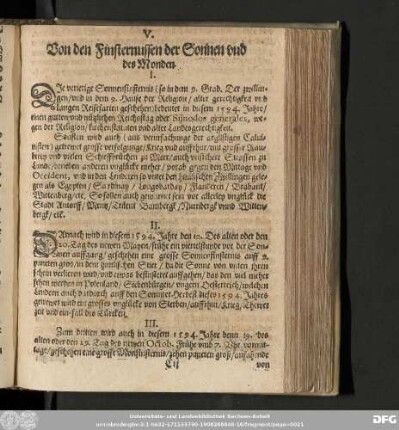 V.
Von den Finsternussen der Sonnen vnd
des Monden.
I.
DIe verierige Sonnenfinsternis (so in dem 9. Grad. Der zwillin-
gen/vnd in dem 9. Hause der Religion/ alter gerechtigkeit vnd
langen Reisesarten geschehen) bedeutet in disem 1594. Jahre/
einen guten vnd nützlichen Reichstag oder Synodos generales, we-
gen der Religion/ kirchenstatuten vnd alter Landesgerechtigkeit.
Sonsten wird auch (aus vermischunge der
) gedrewet grosse verfolgunge/ Krieg vnd auffrhur/ mit grosser Rau-
berey vnd vielen Schiffbrüchen zu Meer/ auch vnsicherer Strassen zu
Lande/ neben anderen vnglücke mehr/ vorab gegen den Mittage vnd
Occident, vnd in den Landern so vnter den zwillingen gele-
gen als Egypten/ Sardinien/ Longobardey/ Flanderen/ Braband/
Wirtenbergk/ So sollen auch gewarnet sein vor allerley vnglück die
Stadt Antorff/ Mentz/ Trident Bambergk/ Nurnbergk vnnd Witten-
bergk/ etc.
II.
DArnach wird in diesem 1594. Jahre den 10. Des alten oder den
20. Tag des newen Mayen/ frühe ein viertelstunde vor der Son-
nen auffgang/ geschehen eine grosse Sonnenfinsternis auff 9.
puncten gros/ in dem jrrdischen Stier/ da die Sonne von vnten jren
schein verlieren wird/ vnd etwas verfinstert auffgehen/ das den viel mehr
sehen werden in Polenland/ Siebenbürgen/ vngern Oesterreich/ welchen
Landern auch dadurch auff den Sommer Herbst dieses 1594. Jahres
gedrewet wird ein grosses vnglücke von Sterben/ auffrhur/ Krieg/ Thewre
zeit vnd einfall des Türcken.
III.
Zum dritten wird auch in diesem 1594. Jahre denn 19. des
alten oder den 29. Tag des newen Octob. Frühe vmb 7. Vhr vormit-
tage/ geschehen eine grosse Monfinsternis/ zehen puncten gros/ anfahende
C ij
von
Universitäts- und Landesbibliothek Sachsen-Anhalt
urn:nbn:de:gbv:3:1-
DFG